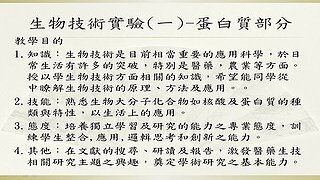 生物技術實驗(一)-蛋白質部分
教學目的
1. 知識：生物技術是目前相當重要的應用科學，於日
常生活有許多的突破，特別是醫藥、農業等方面。
授以學生物技術方面相關的知識，希望能同學從
中瞭解生物技術的原理、方法及應用。。
2. 技能：熟悉生物大分子化合物如核酸及蛋白質的種
類與特性，以生活上的應用。
3. 態度：培養獨立學習及研究的能力之專業態度，訓
練學生整合,應用,邏輯思考和創新之能力。
4. 其他：在文獻的搜尋、研讀及報告，激發醫藥生技
相關研究主題之興趣，奠定學術研究之基本能力。